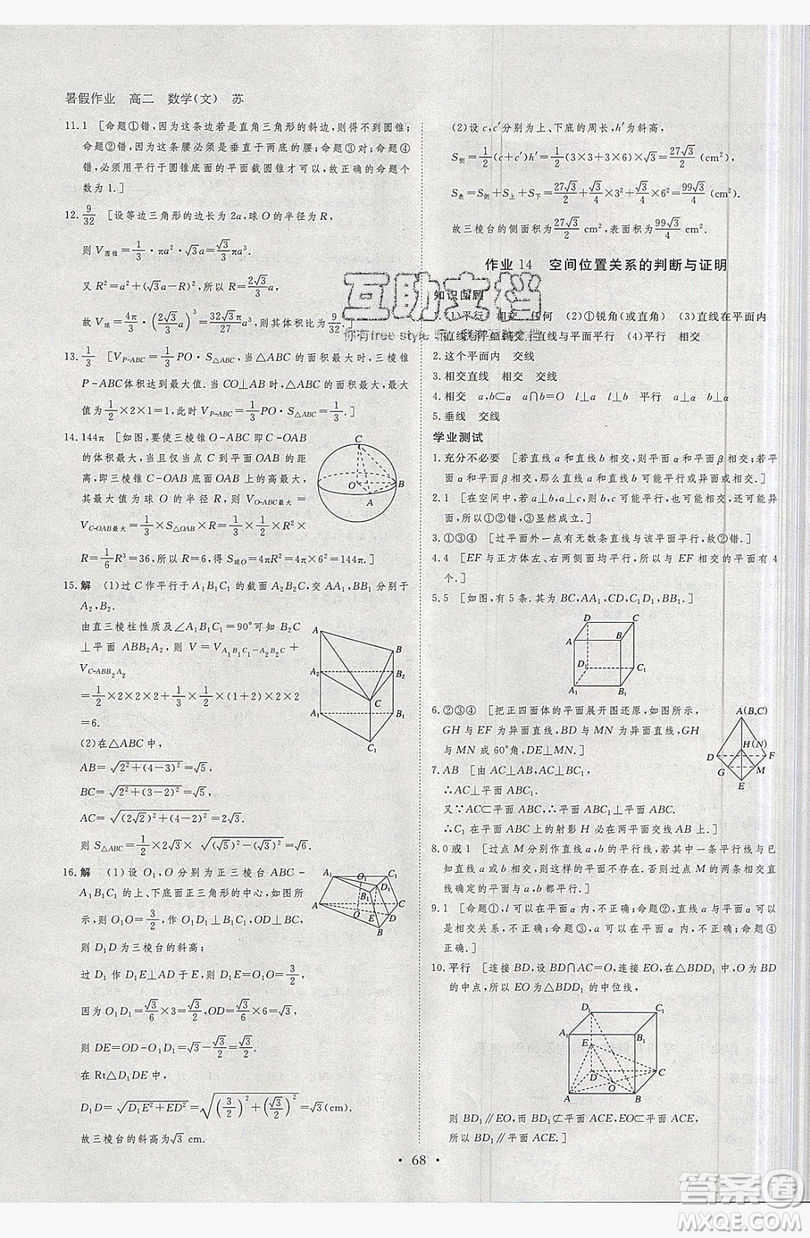 暑假作业 高二 数学(文) 苏
11.1 [命题①错,因为这条边若是直角三角形的斜边,则得不到圆锥;
命题②错,因为这条腰必须是垂直于两底的腰;命题③对;命题④
错,必须用平行于圆锥底面的平面截圆锥才可以,故正确命题的个
数为1.]
12. 9/32 [设等边三角形的边长为2a,球O的半径为R,
则V圆锥=1/3·πa²·√3a=√3/3 πa³.
又R=√3a,
故V球=4π/3·(√3a)³
13. 1/3 [VP-ABC=1/3 PO·S△ABC,当△ABC的面积最大时,三棱锥
P-ABC体积达到最大值.当CO⊥AB时,△ABC的面积最大,最
大值为1/2×2×1=1,此时VP-ABC=1/3 PO·S△ABC=1/3.]
14.144π [如图,要使三棱锥O-ABC即C-OAB
的体积最大,当且仅当点C到平面OAB的距
离,即三棱锥C-OAB底面OAB上的高最大,
其最大值为球O的半径R,则VO-ABC最大=
VC-OAB最大=1/3×S△OAB×R=1/3×1/2×R²×
R=1/6R³=36,所以R=6,得S球O=4πR²=4π×6²=144π.]
15.解 (1)过C作平行于A1B1C1的截面A2B2C,交AA1,BB1分别于
A2,B2.
由直三棱柱性质及∠A1B1C1=90°可知B2C⊥
平面ABB2A2,则该几何体的体积V=VA1B1C1-A2B2C+
VC-ABB2A2
=1/2×2×2×2+1/3×1/2×(1+2)×2×2
=6.
(2)在△ABC中,
AB=√(2²+(4-3)²)=√5,
BC=√(2²+(3-2)²)=√5,
AC=√((2√2)²+(4-2)²)=2√3.
则S△ABC=1/2×2√3×√((√5)²-(√3)²)=√6.
16.解 (1)设O1,O分别为正三棱台ABC-
A1B1C1的上、下底面正三角形的中心,如图所
示,则O1O=3/2,过O1作O1D1⊥B1C1,OD⊥BC,
则D1D为三棱台的斜高;
过D1作D1E⊥AD于E,则D1E=O1O=3/2,
因为O1D1=√3/6×3=√3/2,OD=√3/6×6=√3,
则DE=OD-O1D1=√3-√3/2=√3/2.
在Rt△D1DE中,
D1D=√(D1E²+ED²)=√((3/2)²+(√3/2)²)=√3(cm).
故三棱台的斜高为√3 cm.
(2)设c,c′分别为上、下底的周长,h′为斜高,
S侧=1/2(c+c′)h′=1/2(3×3+3×6)×√3=27√3/2(cm²),
S表=S侧+S上+S下=27√3/2+√3/4×3²+√3/4×6²=99√3/4(cm²).
故三棱台的侧面积为27√3/2 cm²,表面积为99√3/4 cm².
作业14 空间位置关系的判断与证明
知识回顾
1.(1)平行 相交 任何 (2)①锐角(或直角) (3)直线在平面内
直线与平面相交 直线与平面平行 (4)平行 相交
2.这个平面内 交线
3.相交直线 a,b⊂α a∩b=P
4.相交 a,b⊂α a∩b=O l⊥a l⊥b 平行 a⊥α b⊥α
5.垂线 交线
学业测试
1.充分不必要 [若直线a和直线b相交,则平面α和平面β相交;若
平面α和平面β相交,那么直线a和直线b可能平行或异面或相交.]
2.1 [在空间中,若a⊥b,a⊥c,则b,c可能平行,也可能相交,还可能异
面,所以①②错,③显然成立.]
3.①③④ [过平面外一点有无数条直线与该平面平行,故②错.]
4.4 [EF与正方体左、右两侧面均平行,所以与EF相交的平面有4
个.]
5.5 [如图,有5条.其为BC,AA1,CD,D1C1,BB1.]
6.②③④ [把正四面体的平面展开图还原,如图所示,
GH与EF为异面直线,BD与MN为异面直线,
GH与MN成60°角,DE⊥MN.]
7.AB [∵AC⊥AB,AC⊥BC1,
∴AC⊥平面ABC1.
又∵AC⊂平面ABC,∴平面ABC1⊥平面ABC.
∴C1在平面ABC上的射影H必在两平面的交线AB上.]
8.0或1 [过点M分别作直线a、直线b的平行线,若其中一条平行线与已
知直线a或b所确定的平面平行另一条直线时,则满足条件的平面不存在.否则过点M的两条相交
直线确定的平面与a,b都平行.]
9.1 [命题①,l可以在平面α内,不正确;命题②,直线a与平面α可
以是相交关系,不正确;命题③,a可以在平面α内,不正确;命题④
正确.]
10.平行 [连接BD,设BD∩AC=O,连接EO,在△BDD1中,E,O为DD1,BD
的中点,所以EO为△BDD1的中位线,
则BD1∥EO,而BD1⊄平面ACE,EO⊂平面ACE,
所以BD1∥平面ACE.]
· 68 ·
互助文档
答案圈
MXQE.COM